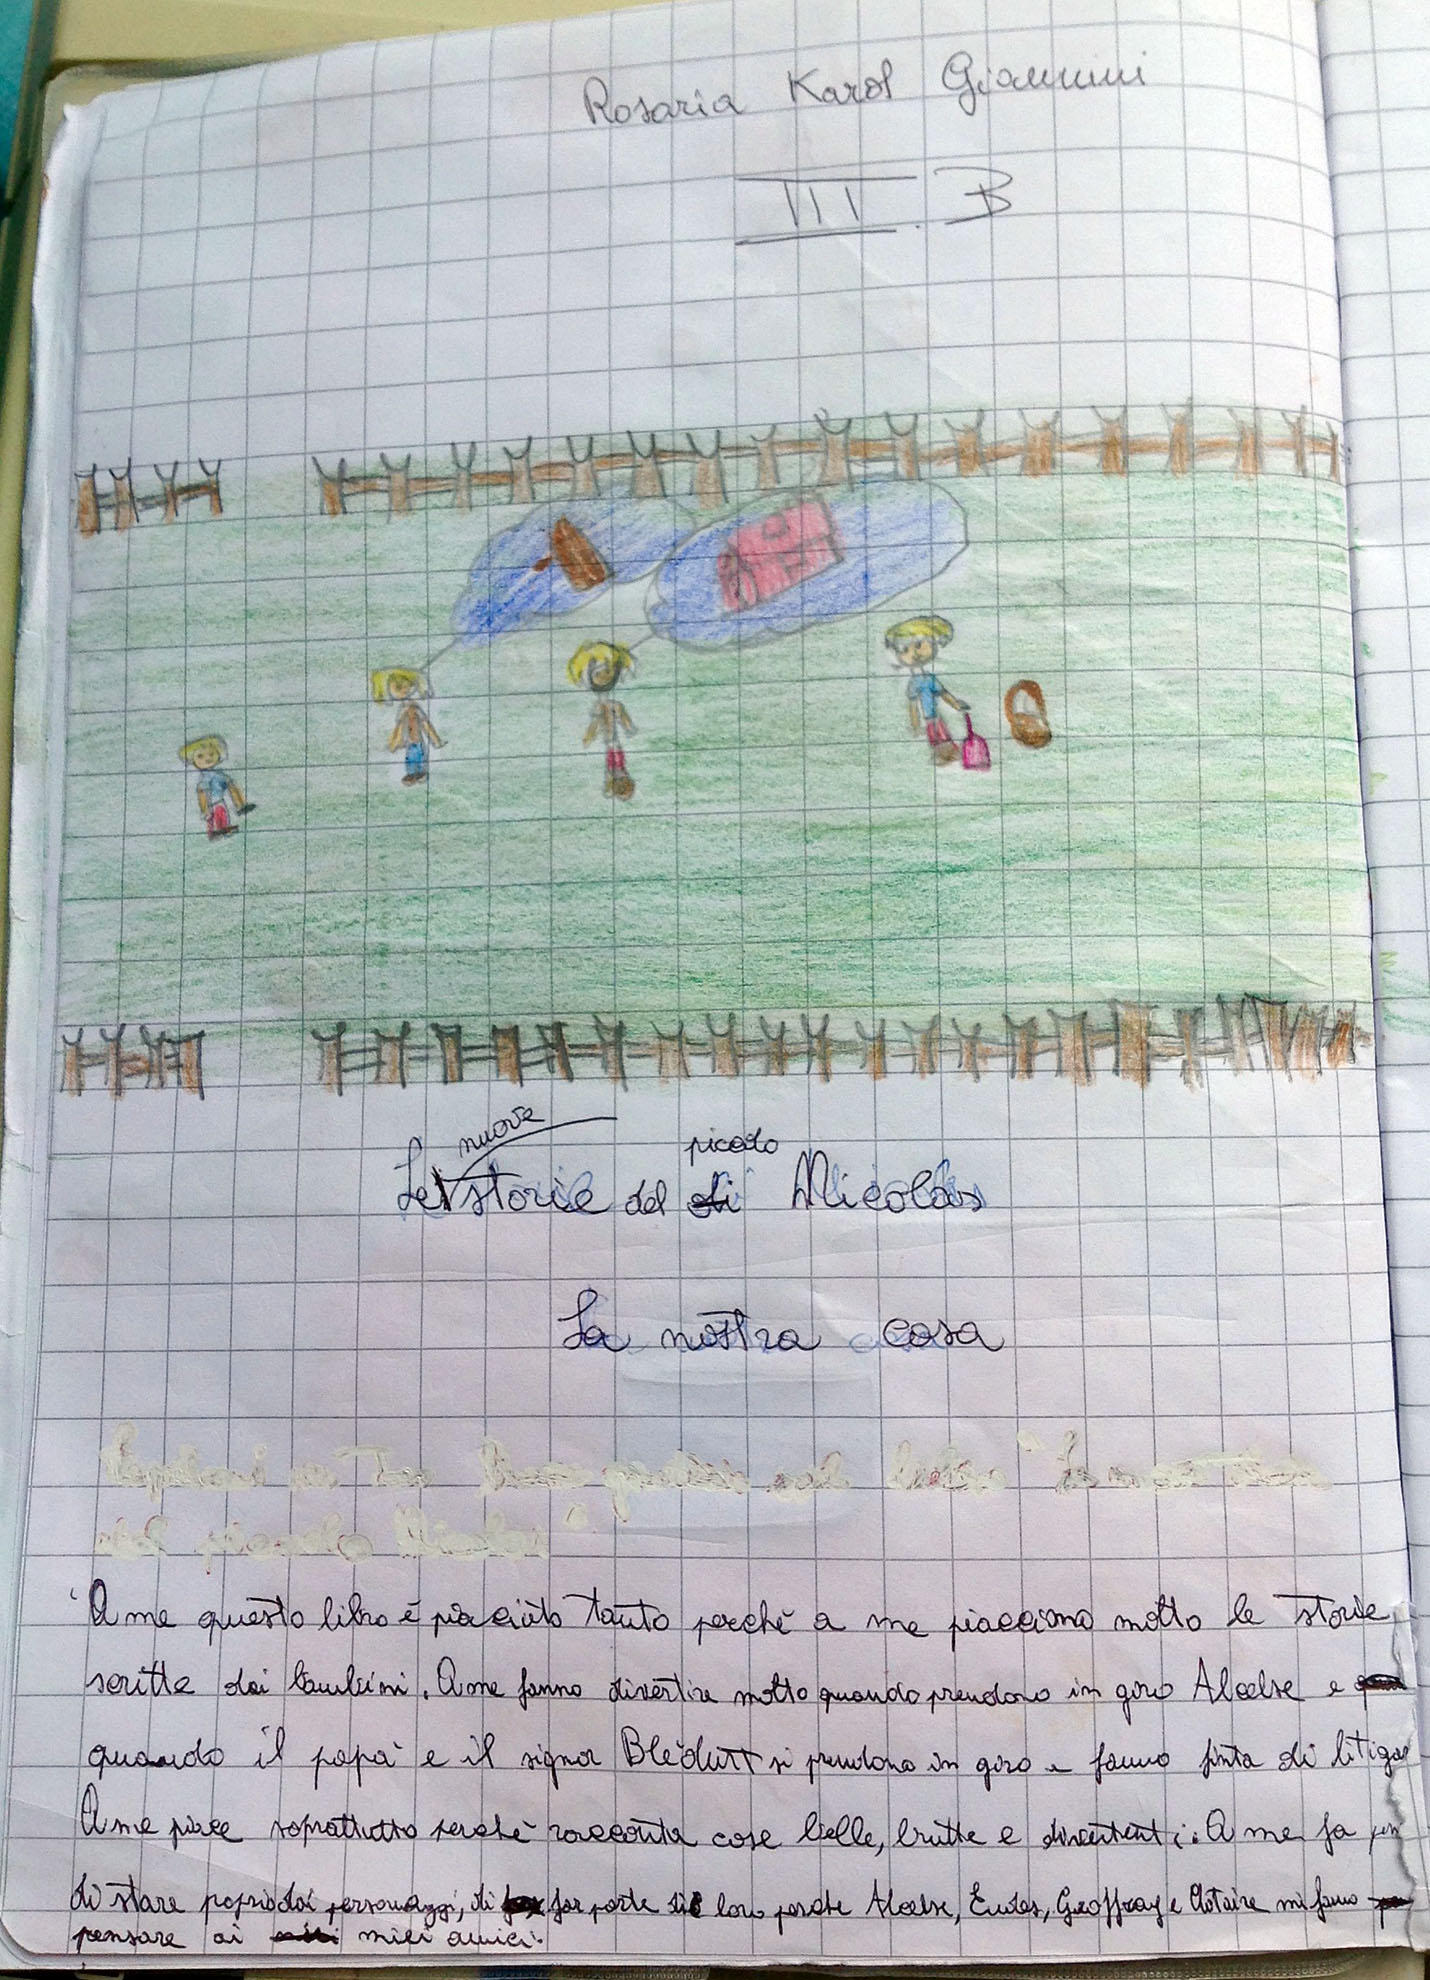 Rosaria Karol Giannini
III. B
Le nuove storie del piccolo Nicolas
La nostra casa
A me questo libro è piaciuto tanto perchè a me piacciono molto le storie
scritte dai bambini. A me fanno divertire molto quando prendono in giro Alceste e
quando il papà e il signor Blédurt si prendono in giro e fanno finta di litigar
A me piace soprattutto perchè racconta cose belle, brutte e divertenti. A me fa pen
di stare poprio dai personaggi, di far parte di loro perchè Alceste, Eudes, Geoffroy e Clotaire mi fanno
pensare ai miei amici.